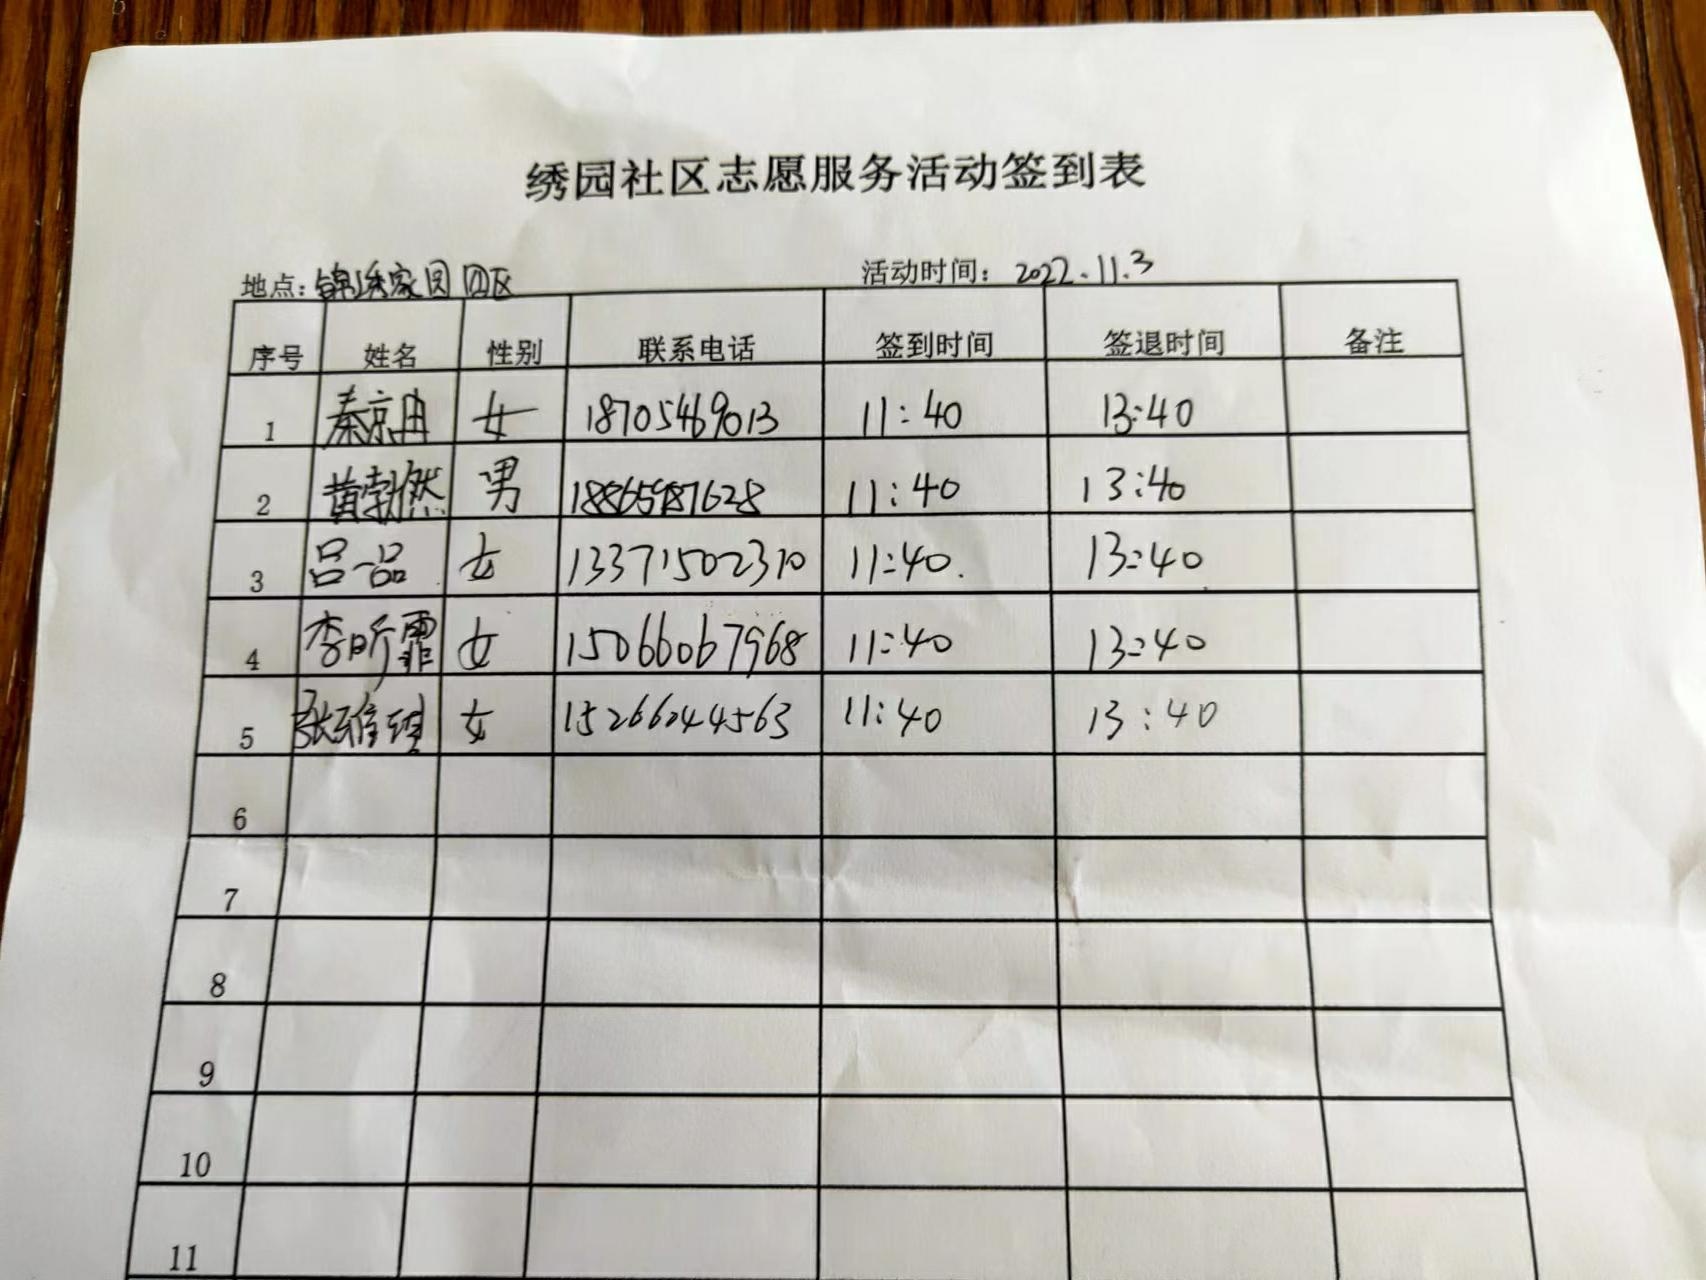 绣园社区志愿服务活动签到表
地点：锦绣家园四区 活动时间：2022.11.3
序号 姓名 性别 联系电话 签到时间 签退时间 备注
1 秦京冉 女 18705469013 11:40 13:40
2 黄勃然 男 18865987628 11:40 13:40
3 吕一品 女 13371502310 11:40. 13:40
4 李昕霏 女 15066067968 11:40 13:40
5 张雅 女 15266244563 11:40 13:40
6
7
8
9
10
11